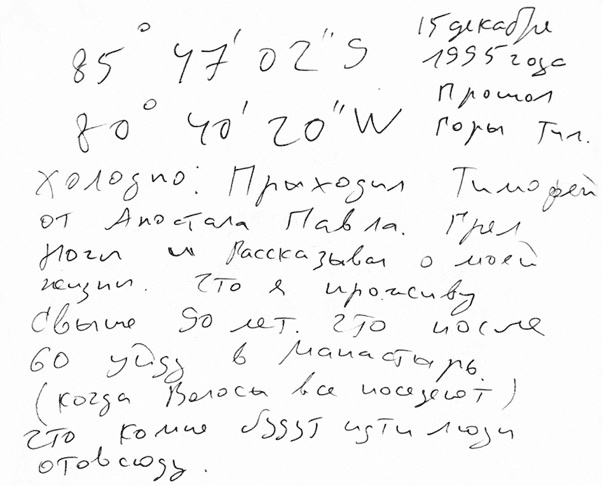 85° 47' 02" S
80° 40' 20" W
15 декабре
1995 года
Прошол
Горы Тил.
Холодно: Прыходил Тимофей
от Апостала Павла. Грел
Ноги и Рассказывал о моей
жизни. Что я проживу
Свыше 90 лет. Что после
60 уйду в манастырь.
(когда Волосы все поседеют)
Что комне будут идти люди
отовсюду.